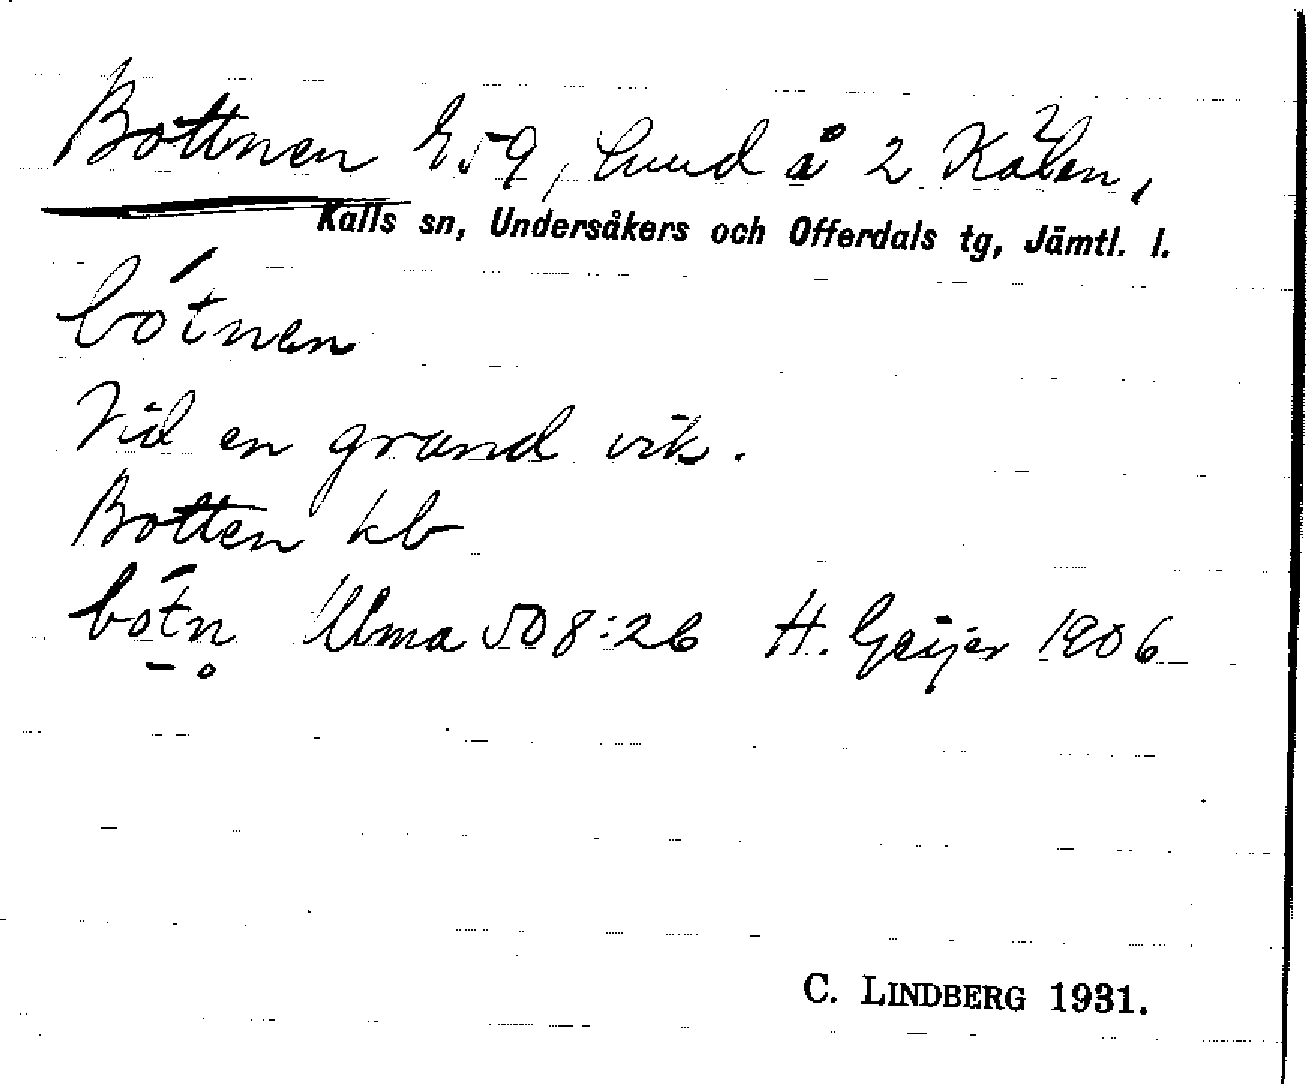 Bottnen E59, lund å 2 Kålen,
Kalls sn, Undersåkers och Offerdals tg, Jämtl. l.
bótnen
Vid en grund vik.
Botten kb
bótn Ulma 508:26 H. Geijer 1906
C. LINDBERG 1931.